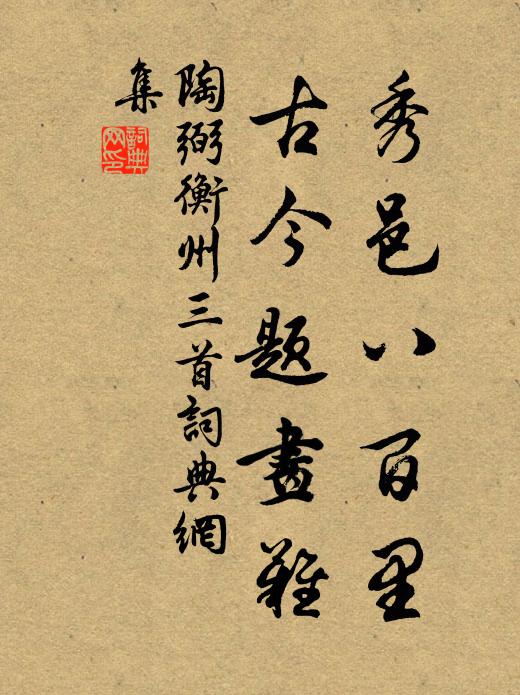 秀邑八百里
古今題畫難
陶弼衡州三首詞典網
集
詞典網印